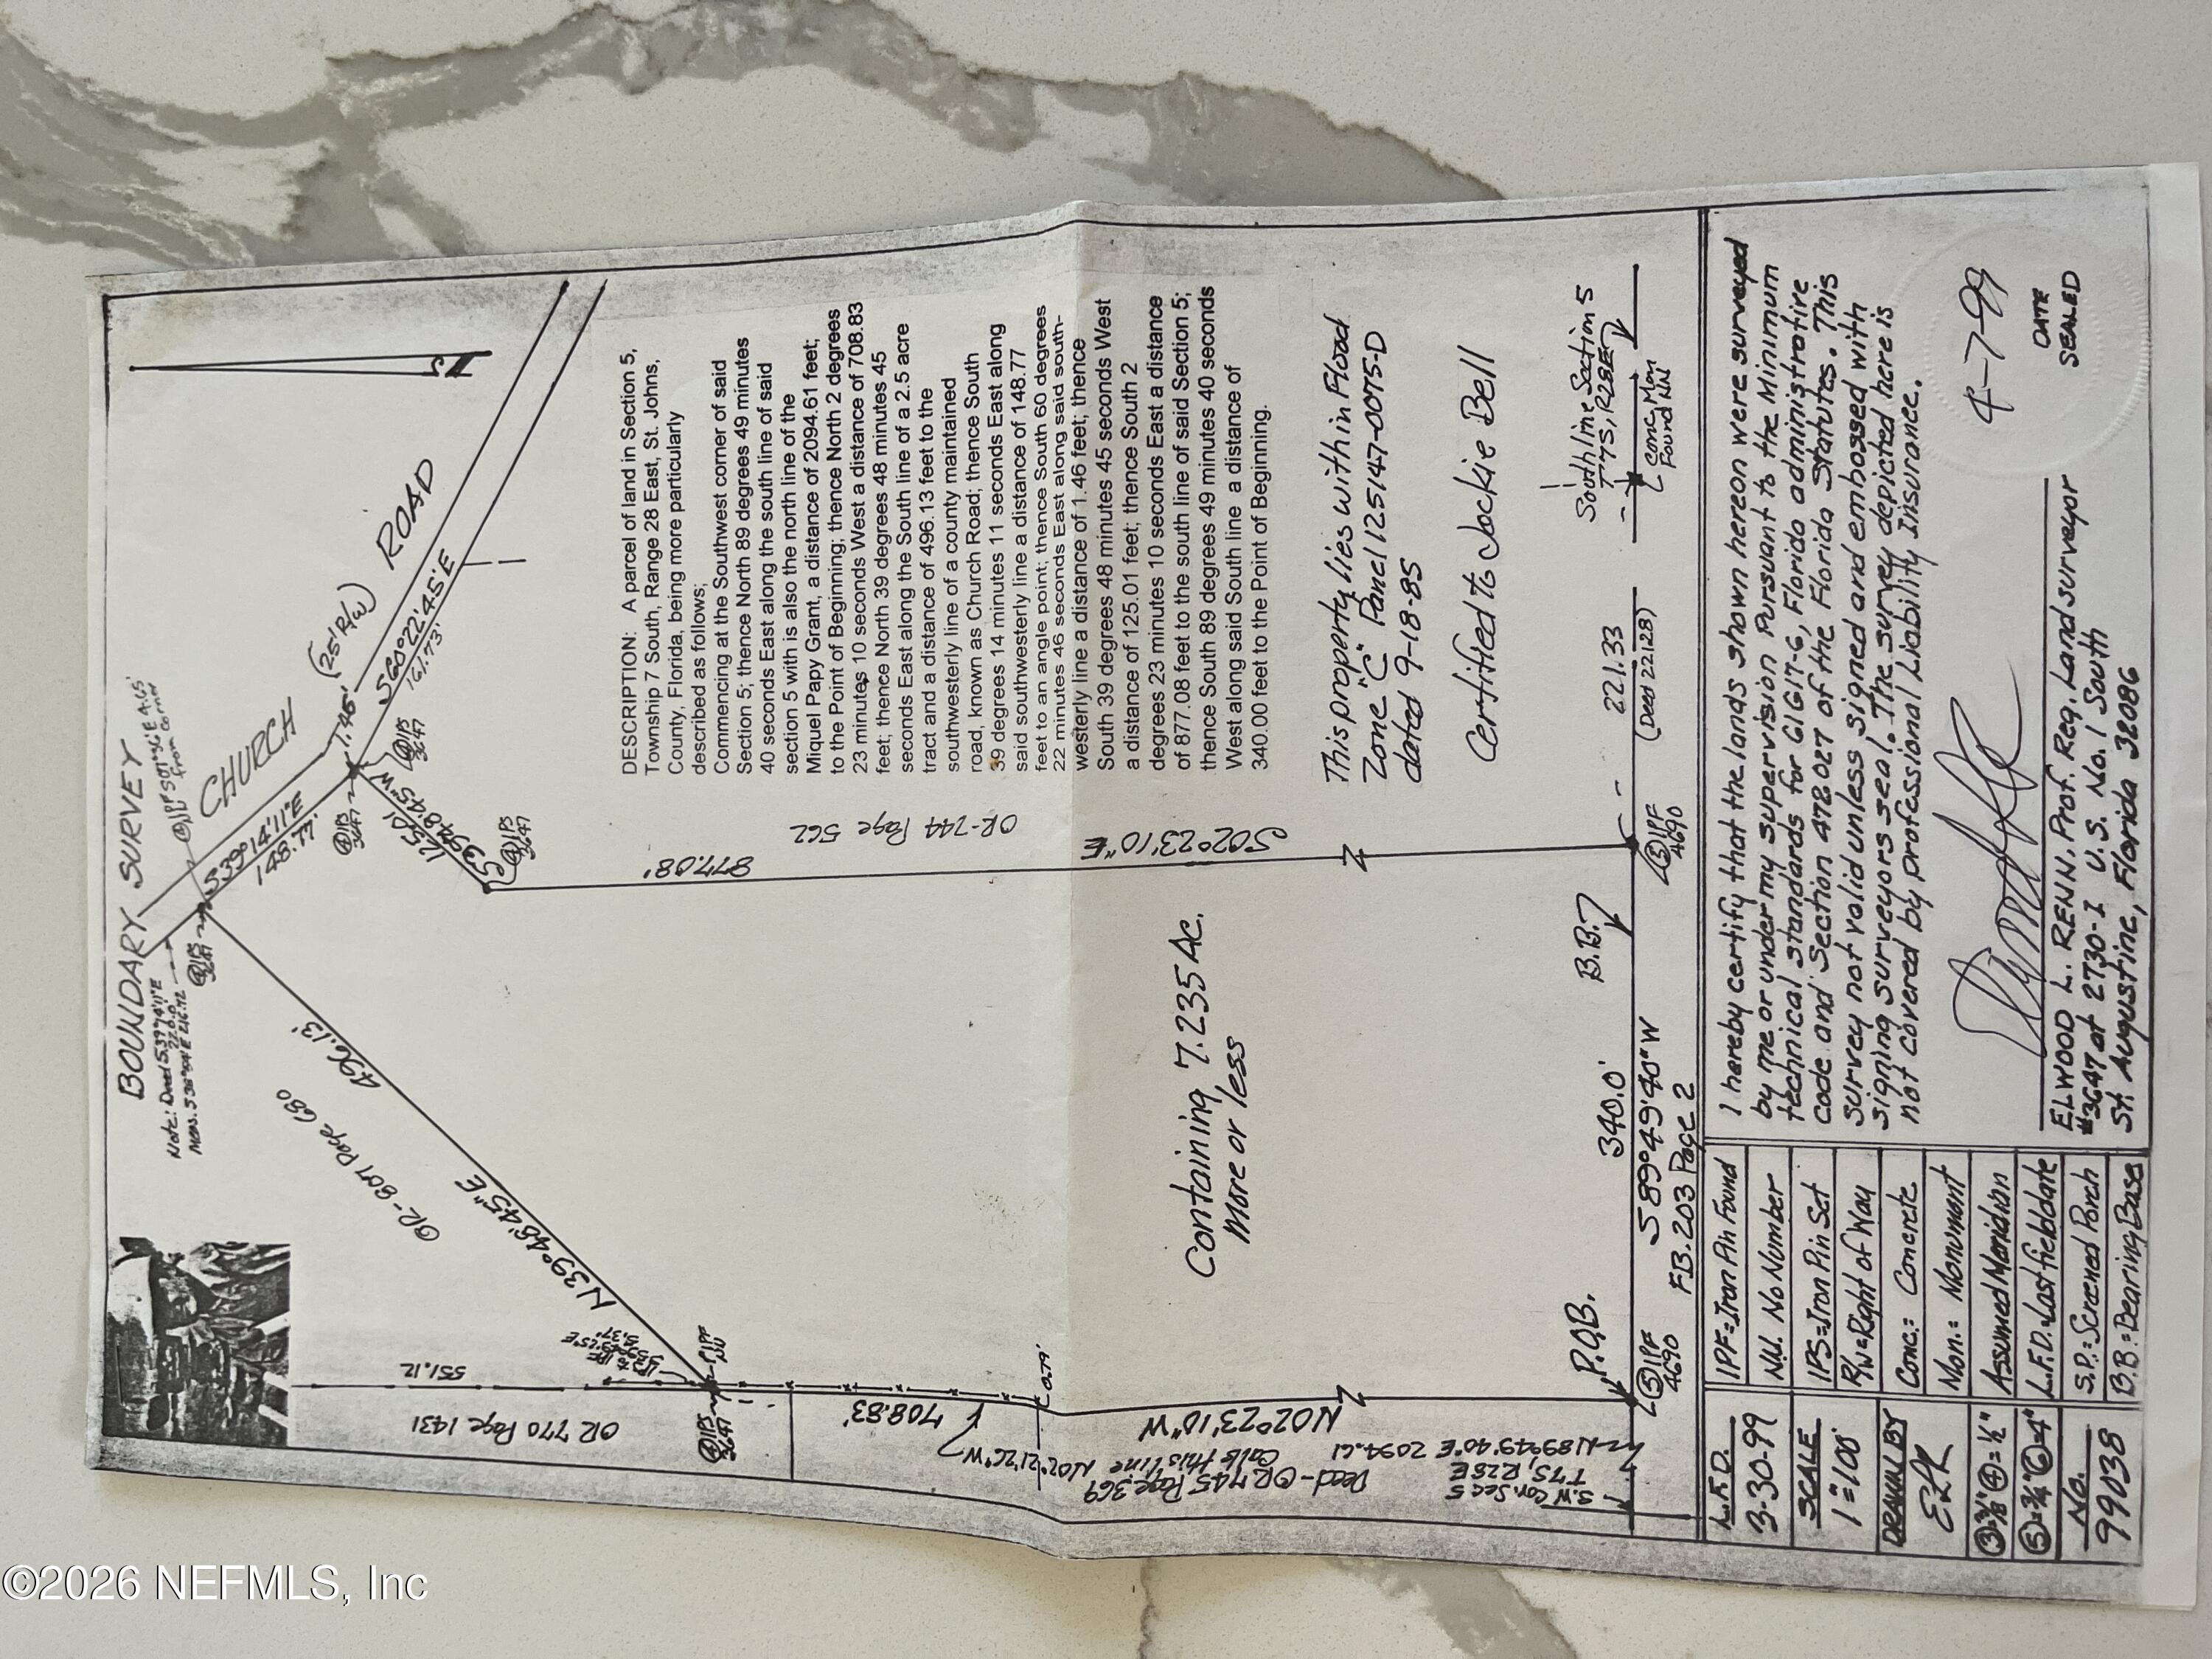 BOUNDARY SURVEY
Note: Deed S39°14'11"E
220.0'
Meas. S38°59'01"E 216.72
④IPS
3647
from corner
CHURCH
(25' R/W)
ROAD
S39°14'11"E
148.77'
1.46'
S60°22'45"E
161.73'
④IPS
3647
④IPS
3647
125.01'
S39°48'45"W
④IPS
3647
496.13'
OR-807 Page 680
N39°48'45"E
551.12
OR 770 Page 1431
④IPS
3647
IPF
NN
708.83'
0.79'
N02°21'26"W
Calls this line
Deed-OR 745 Page 369
N02°23'10"W
877.08'
OR-744 Page 562
S02°23'10"E
DESCRIPTION: A parcel of land in Section 5,
Township 7 South, Range 28 East, St. Johns,
County, Florida, being more particularly
described as follows;
Commencing at the Southwest corner of said
Section 5; thence North 89 degrees 49 minutes
40 seconds East along the south line of said
section 5 with is also the north line of the
Miquel Papy Grant, a distance of 2094.61 feet;
to the Point of Beginning; thence North 2 degrees
23 minutes 10 seconds West a distance of 708.83
feet; thence North 39 degrees 48 minutes 45
seconds East along the South line of a 2.5 acre
tract and a distance of 496.13 feet to the
southwesterly line of a county maintained
road, known as Church Road; thence South
39 degrees 14 minutes 11 seconds East along
said southwesterly line a distance of 148.77
feet to an angle point; thence South 60 degrees
22 minutes 46 seconds East along said south-
westerly line a distance of 1.46 feet; thence
South 39 degrees 48 minutes 45 seconds West
a distance of 125.01 feet; thence South 2
degrees 23 minutes 10 seconds East a distance
of 877.08 feet to the south line of said Section 5;
thence South 89 degrees 49 minutes 40 seconds
West along said South line a distance of
340.00 feet to the Point of Beginning.
Containing 7.235 Ac.
More or less
This property lies within Flood
Zone "C" Panel 125147-0075-D
dated 9-18-85
Certified to Jackie Bell
S.W Cor. Sec 5
T7S, R28E
N89°49'40"E 2094.61
P.O.B.
⑤IPF
4690
340.0'
S89°49'40"W
FB. 203 Page 2
B.B.
⑤IPF
4690
221.33
(Deed 221.28)
South line Section 5
T7S, R28E
Conc. Mon
Found NN
L.F.D.
3-30-99
SCALE
1"=100'
DRAWN BY
ELR
③=3/8" ④=1/2"
⑤=3/4" ⑥=4"
No.
99038
IPF=Iron Pin Found
N.N. No Number
IPS=Iron Pin Set
R/W=Right of Way
Conc.= Concrete
Mon.= Monument
Assumed Meridian
L.F.D.=Last field date
S.P.=Screened Porch
B.B.=Bearing Base
I hereby certify that the lands shown hereon were surveyed
by me or under my supervision Pursuant to the Minimum
technical standards for 61G17-6, Florida administrative
code and Section 472.027 of the Florida Statutes. This
survey not valid unless signed and embossed with
signing surveyors seal. The survey depicted here is
not covered by professional liability insurance.
4-7-99
DATE
SEALED
ELWOOD L. RENN, Prof. Reg. Land surveyor
#3647 at 2730-1 U.S. No. 1 South
St. Augustine, Florida 32086
©2026 NEFMLS, Inc